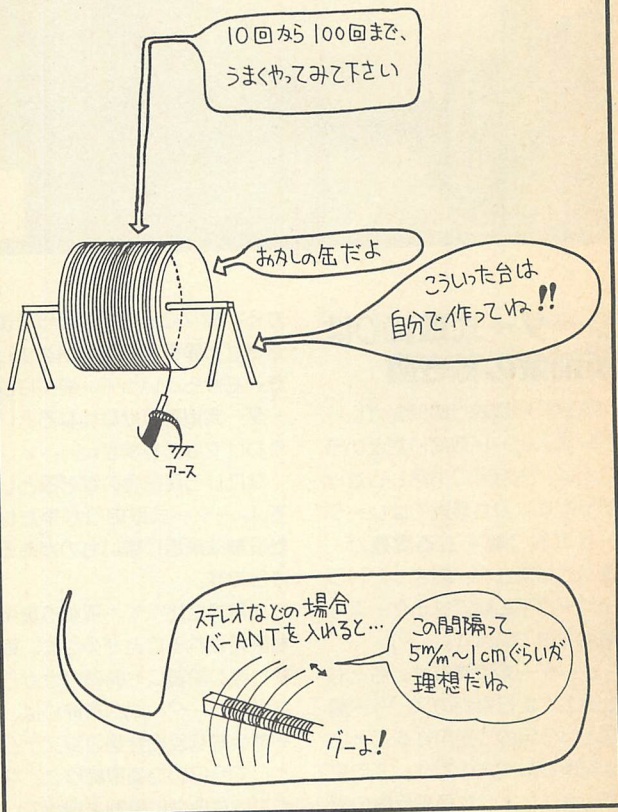 10回から100回まで、
うまくやってみて下さい
おかしの缶だよ
こういった台は
自分で作ってね!!
アース
ステレオなどの場合
バーANTを入れると…
この間隔って
5m/m～1cmぐらいが
理想だね
グーよ!